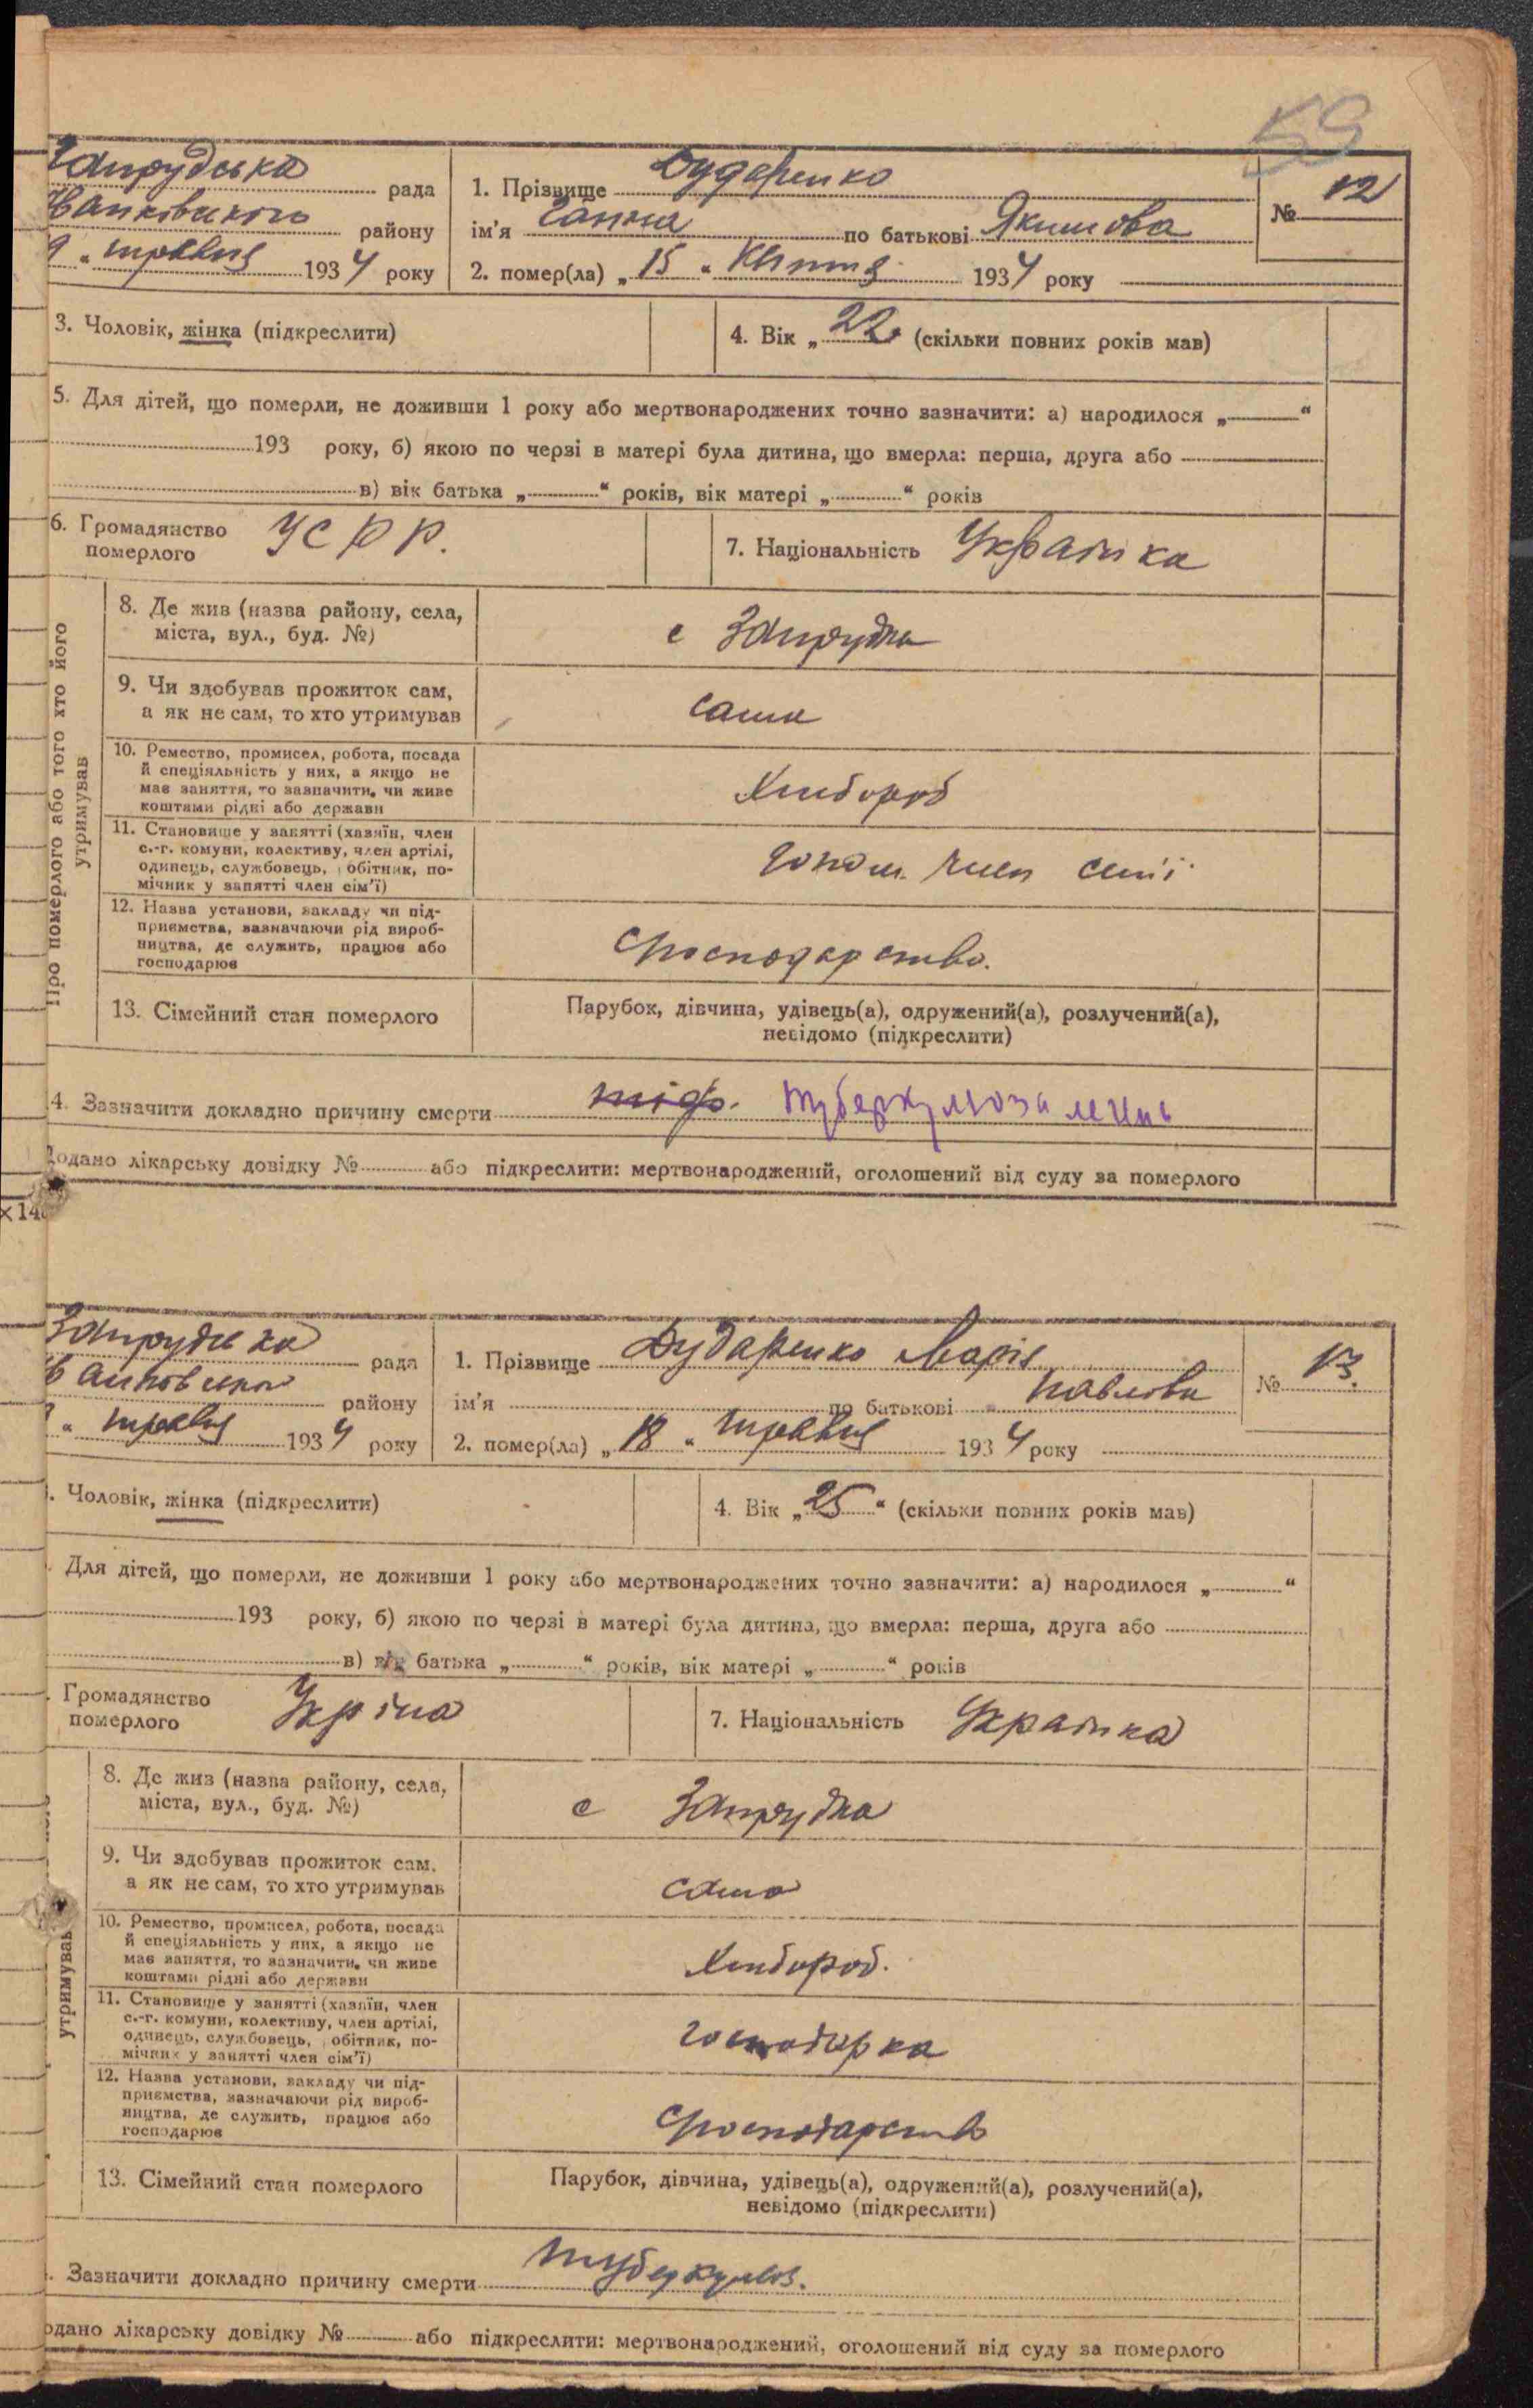 59
Запрудська рада
1. Прізвище Дударенко
№ 12
району
ім'я Ганна по батькові Якимова
9 „ травня 1934 року
2. помер(ла) „ 15 “ Квітня 1934 року
3. Чоловік, жінка (підкреслити)
4. Вік „ 22 (скільки повних років мав)
5. Для дітей, що померли, не доживши 1 року або мертвонароджених точно зазначити: а) народилося „ “
193 року, б) якою по черзі в матері була дитина, що вмерла: перша, друга або
в) вік батька „ “ років, вік матері „ “ років
6. Громадянство
померлого
УСРР.
7. Національність Українка
Про померлого або того хто його
утримував
8. Де жив (назва району, села,
міста, вул., буд. №)
с Запрудка
9. Чи здобував прожиток сам,
а як не сам, то хто утримував
сама
10. Ремество, промисел, робота, посада
й спеціяльність у них, а якщо не
має заняття, то зазначити, чи живе
коштами рідні або держави
Хлібороб
11. Становище у занятті (хазяїн, член
с.-г. комуни, колективу, член артілі,
одинець, службовець, обітник, по-
мічник у занятті член сім'ї)
допом. член сем'ї
12. Назва установи, закладу чи під-
приємства, зазначаючи рід вироб-
ництва, де служить, працює або
господарює
Господарство.
13. Сімейний стан померлого
Парубок, дівчина, удівець(а), одружений(а), розлучений(а),
невідомо (підкреслити)
4. Зазначити докладно причину смерти тіф. туберкульоза легень
Додано лікарську довідку № або підкреслити: мертвонароджений, оголошений від суду за померлого
×148
Запрудська рада
1. Прізвище Дударенко Марія
№ 13.
району
ім'я по батькові Павлова
„ травня 1934 року
2. помер(ла) „ 18 “ травня 1934 року
. Чоловік, жінка (підкреслити)
4. Вік „ 25 “ (скільки повних років мав)
. Для дітей, що померли, не доживши 1 року або мертвонароджених точно зазначити: а) народилося „ “
193 року, б) якою по черзі в матері була дитина, що вмерла: перша, друга або
в) вік батька „ “ років, вік матері „ “ років
. Громадянство
померлого
Укріна
7. Національність Українка
утримував
8. Де жив (назва району, села,
міста, вул., буд. №)
с Запрудка
9. Чи здобував прожиток сам,
а як не сам, то хто утримував
сама
10. Ремество, промисел, робота, посада
й спеціяльність у них, а якщо не
має заняття, то зазначити, чи живе
коштами рідні або держави
Хлібороб.
11. Становище у занятті (хазяїн, член
с.-г. комуни, колективу, член артілі,
одинець, службовець, обітник, по-
мічник у занятті член сім'ї)
господарка
12. Назва установи, закладу чи під-
приємства, зазначаючи рід вироб-
ництва, де служить, працює або
господарює
Господарств
13. Сімейний стан померлого
Парубок, дівчина, удівець(а), одружений(а), розлучений(а),
невідомо (підкреслити)
. Зазначити докладно причину смерти туберкульоз.
одано лікарську довідку № або підкреслити: мертвонароджений, оголошений від суду за померлого